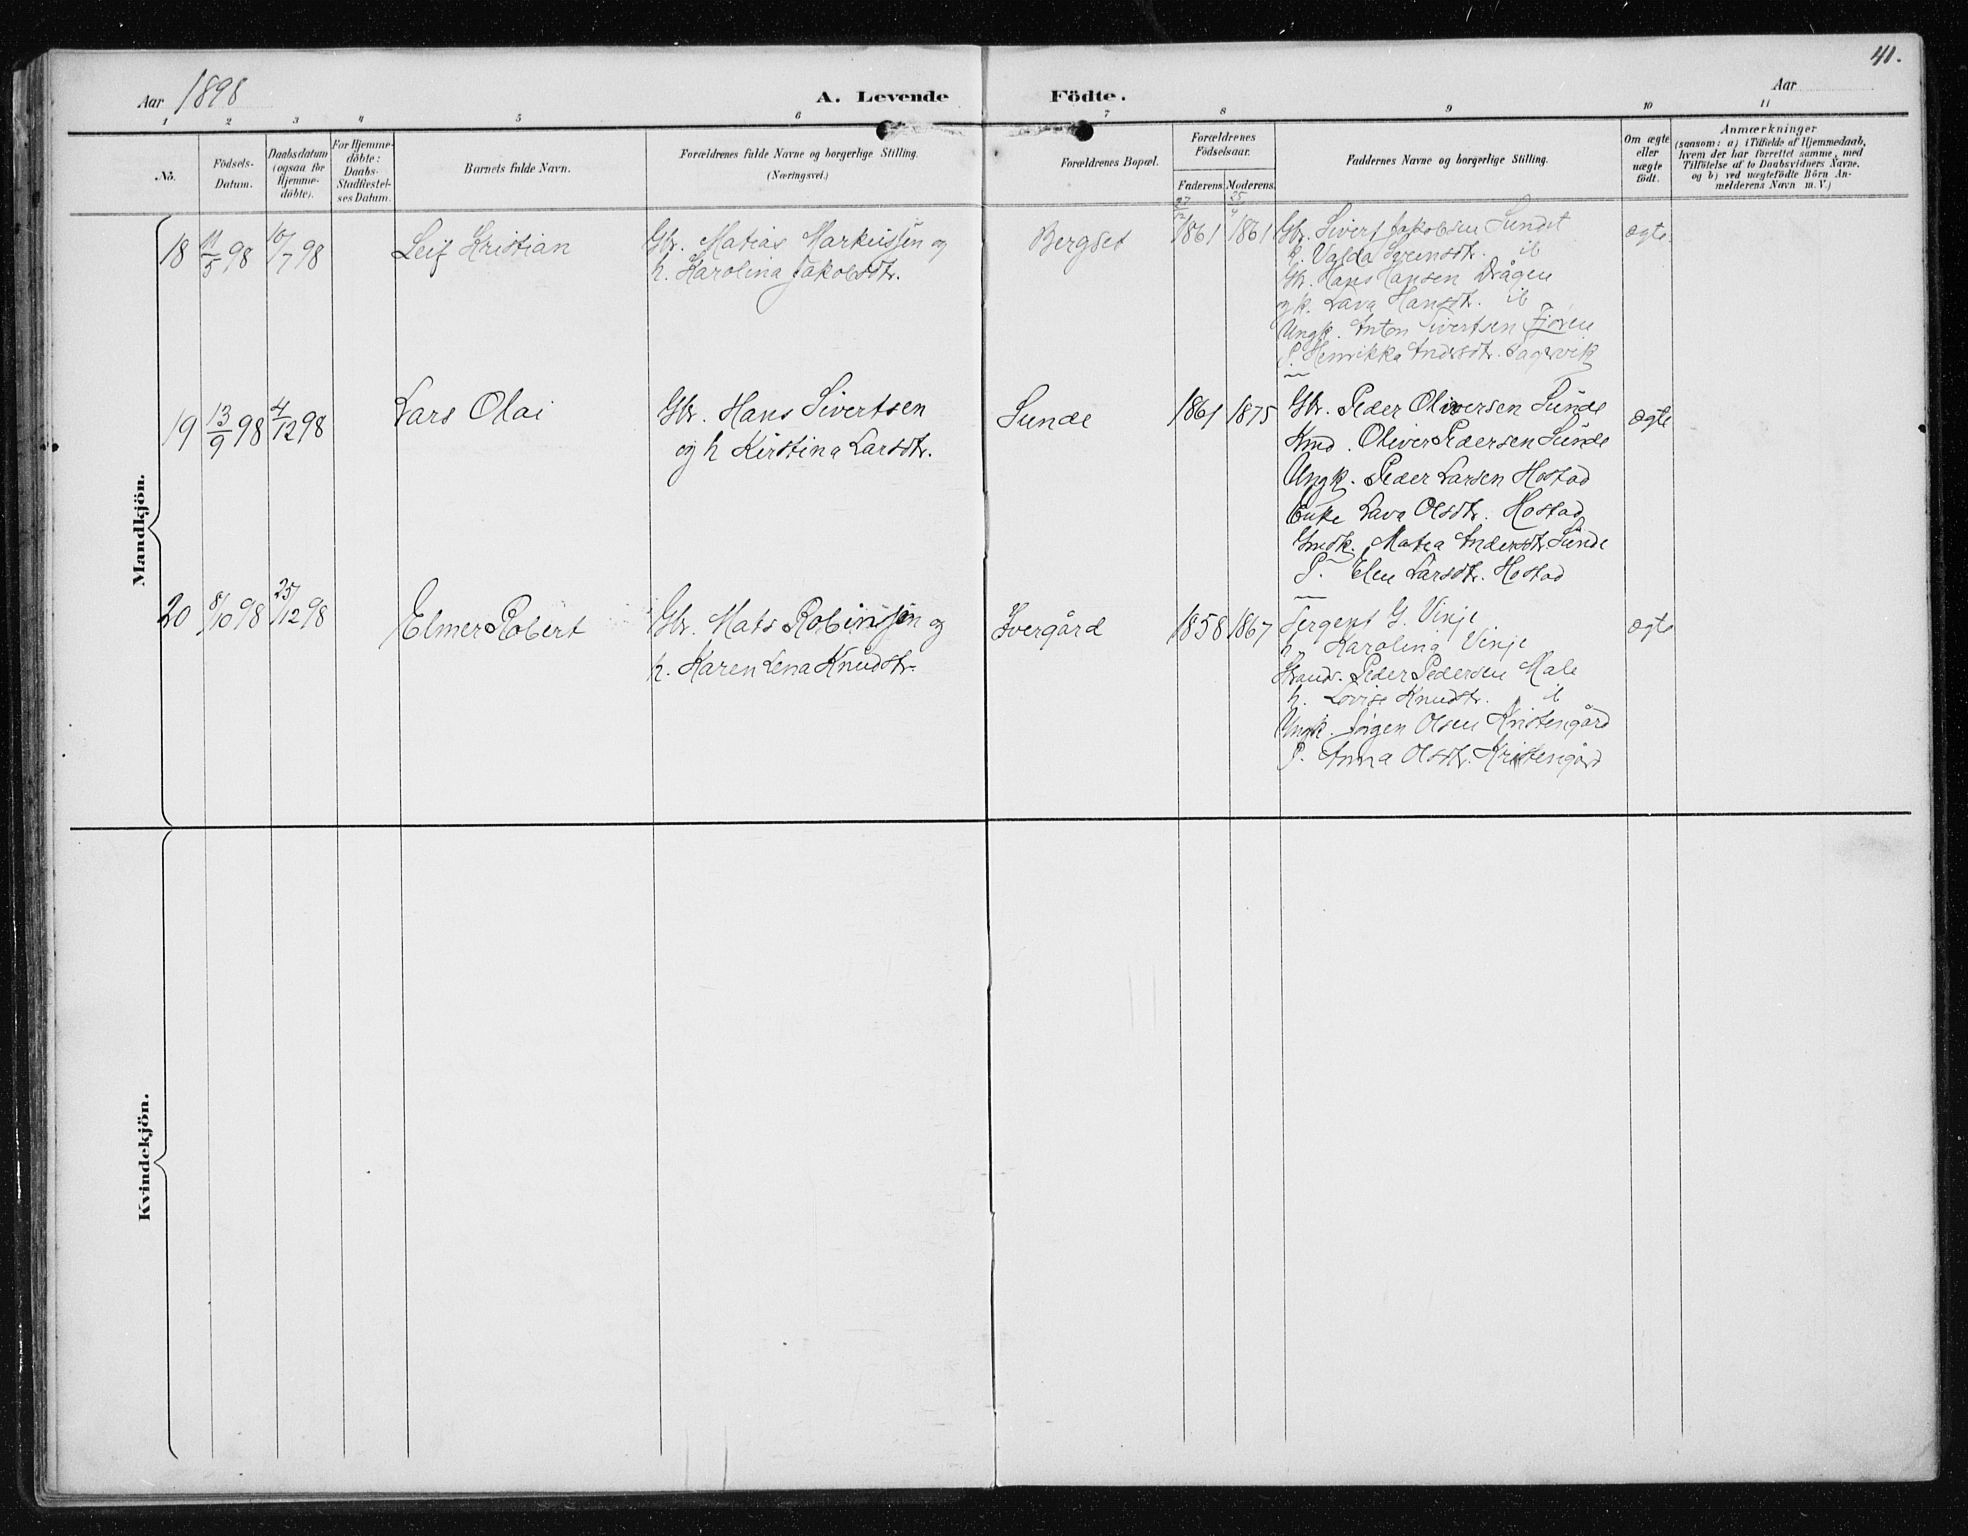 41.
Aar 1898
A. Levende Födte.
Aar
1 2 3 4 5 6 7 8 9 10 11
No.
Födsels-Datum.
Daabsdatum (ogsaa for Hjemme-döbte).
For Hjemme-döbte: Daabs-Stadfæstel-ses Datum.
Barnets fulde Navn.
Forældrenes fulde Navne og borgerlige Stilling.
(Næringsvei.)
Forældrenes Bopæl.
Forældrenes Födselsaar.
Faderens. Moderens.
Faddernes Navne og borgerlige Stilling.
Om ægte eller uægte födt.
Anmærkninger
(saasom: a) i Tilfælde af Hjemmedaab,
hvem der har forrettet samme, med
Tilföielse af to Daabsvidners Navne.
og b) ved uægtefödte Börn An-
melderens Navn m. V.)
Mandkjön.
18 11/5 98 10/7 98 Leif Kristian
Gbr. Matias Markussen og
h. Karolina Jakobsdtr.
Bergset
27/12 1861 25/4 1861
Gbr. Sivert Jakobsen Sundet
k. Valda Sveinsdtr. ib
Gbr. Hans Hansen Drågen
og k. Lava Hansdtr. ib
Ungk. Anton Sivertsen
P. Henrikka Andersdtr. Sagervik
ægte.
19 13/9 98 4/12 98 Lars Olai
Gbr. Hans Sivertsen
og h Kirstina Larsdtr.
Sunde
1861 1875
Gbr. Peder Oliversen Sunde
Kmd. Oliver Pedersen Sunde
Ungk. Peder Larsen Hostad
Enke Lava Olsdtr. Hostad
Gmdk. Matea Andersdtr Sunde
P. Elen Larsdtr. Hostad
ægte
20 8/10 98 25/12 98 Elmer Robert
Gbr. Mats Robinssøn og
h. Karen Lena Knudstr.
Ivergård
1858 1867
Sergent G. Vinje
h. Karolina Vinje
Strands. Peder Pedersen Male
h. Lovise Knudstr. ib
Ungk. Jørgen Olsen Kristengård
P. Anna Olsdtr. Kristengård
ægte
Kvindekjön.